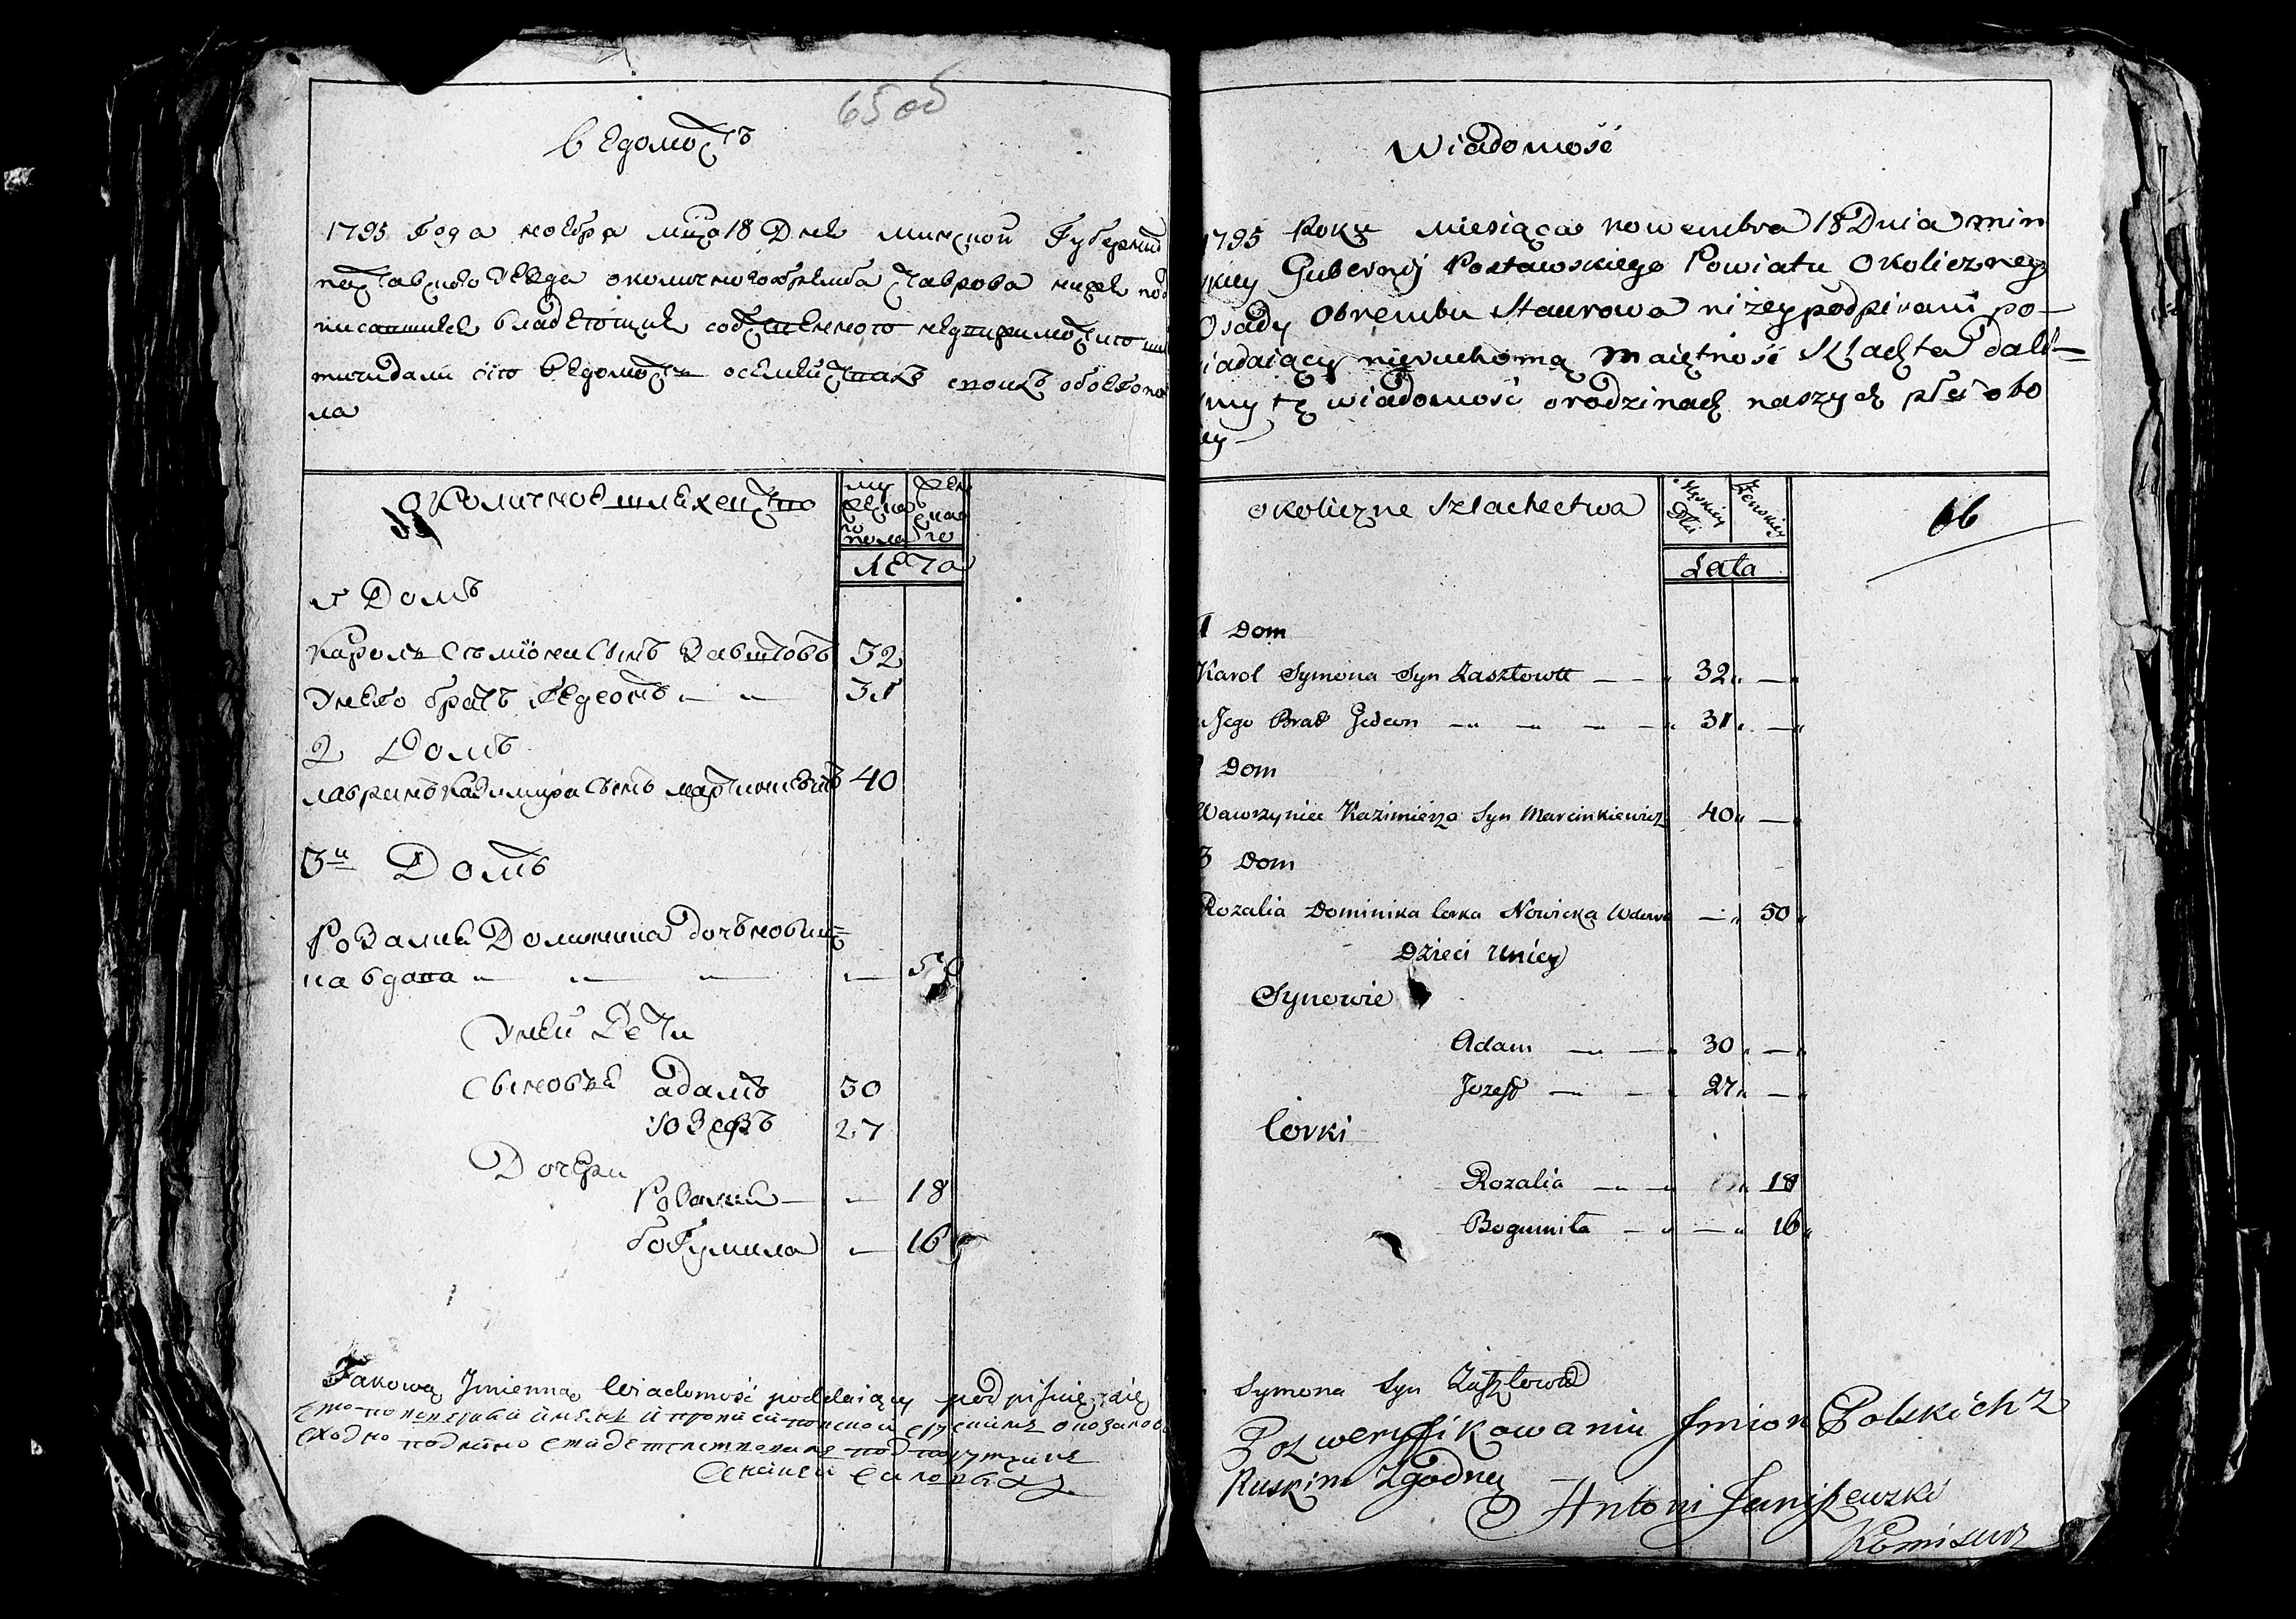 65 об
ведомость
1795 года ноября мца 18 Дня минской Губернии
поставского уезда околичного обремба Ставрова ниже под
писавшиеся владеющие
ведомость о
ла
околичное шляхецтво
му
жеска
го
пола
жен
ска
го
лета
1 Домъ
Кароль Сымона Сынъ Завштовтъ 32
Унего братъ Гедеонъ 31
2 Домъ
лавринъ казимира Сынъ марцинкевичъ 40
3й Домъ
Розалия Доминика дочь новиц=
ка вдова 50
Уней Дети
Сыновья адамъ 30
юзефъ 27
Дочери
Розалия 18
Богумила 16
Takową Jmienną Wiadomość podaiąc podpisuię się
Wiadomość
1795 Roku miesiąca nowembra 18 Dnia min
skiey Gubernij Postawskiego Powiatu Okoliczney
Osady Obrembu Staurowa niżey podpisani po-
siadaiący nieruchomą Maiętność Szlachta dali-
śmy tę wiadomość o rodzinach naszych płci obo
iey
okoliczne Szlachectwa
Męskiey Płci
Żenskiey
66
Lata
1 Dom
Karol Symona Syn Zasztowtt 32
Jego Brat Gedeon 31
Dom
Wawrzyniec Kazimierza Syn Marcinkiewicz 40
3 Dom
Rozalia Dominika Corka Nowicka Wdowa 50
Dzieci Uniey
Synowie
Adam 30
Jozeff 27
Corki
Rozalia 18
Bogumiła 16
Symona Syn Zasztowt
Po zweryffikowaniu Jmion Polskich z
Ruskim Zgodny
Antoni Juniszewski
Komisarz